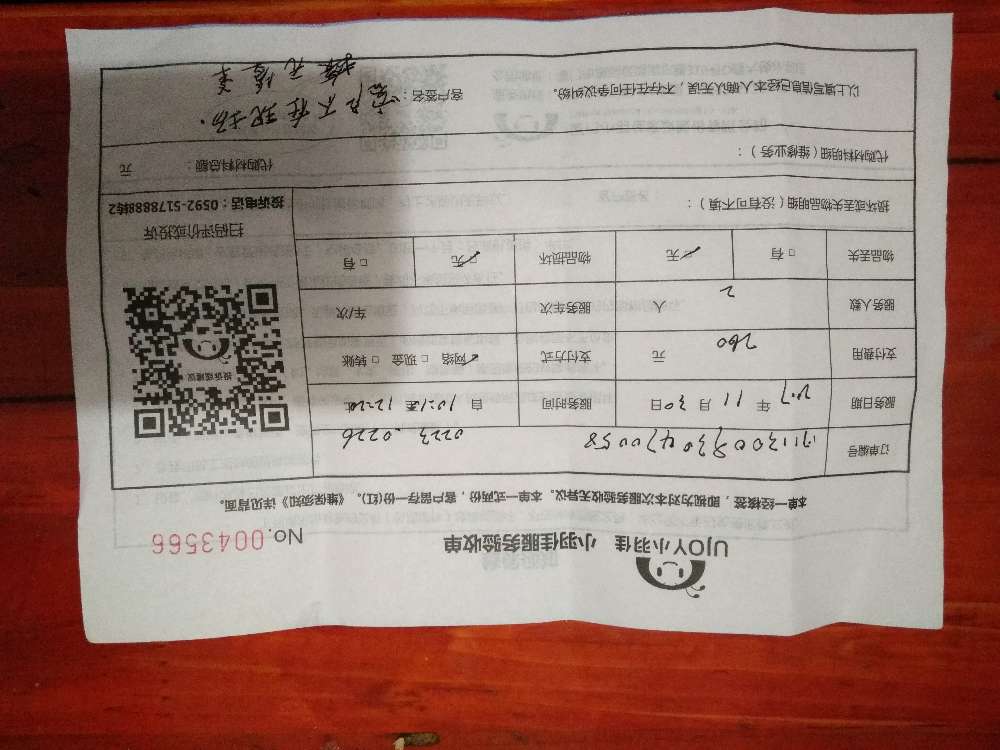 UJOY小羽佳 小羽佳服务验收单 No.0043566
本单一经核签，即视为对本次服务验收无异议。本单一式两份，客户留存一份(红)。《维保须知》详见背面。
订单编号 0223.0226
服务日期 年 11 月 30 日 服务时间 自 至
支付费用 260 元 支付方式 ✓网络 □现金 □转账
服务人数 2 人 服务车次 车/次
物品丢失 □有 ✓无 物品损坏 ✓无 □有
投诉或建议
扫码评价或投诉
投诉电话：0592-5178888转2
损坏或丢失物品明细（没有可不填）：
代购材料明细（维修业务）： 代购材料总额： 元
以上填写信息已经本人确认无误，不存在任何争议纠纷。 客户签名：客户不在现场.